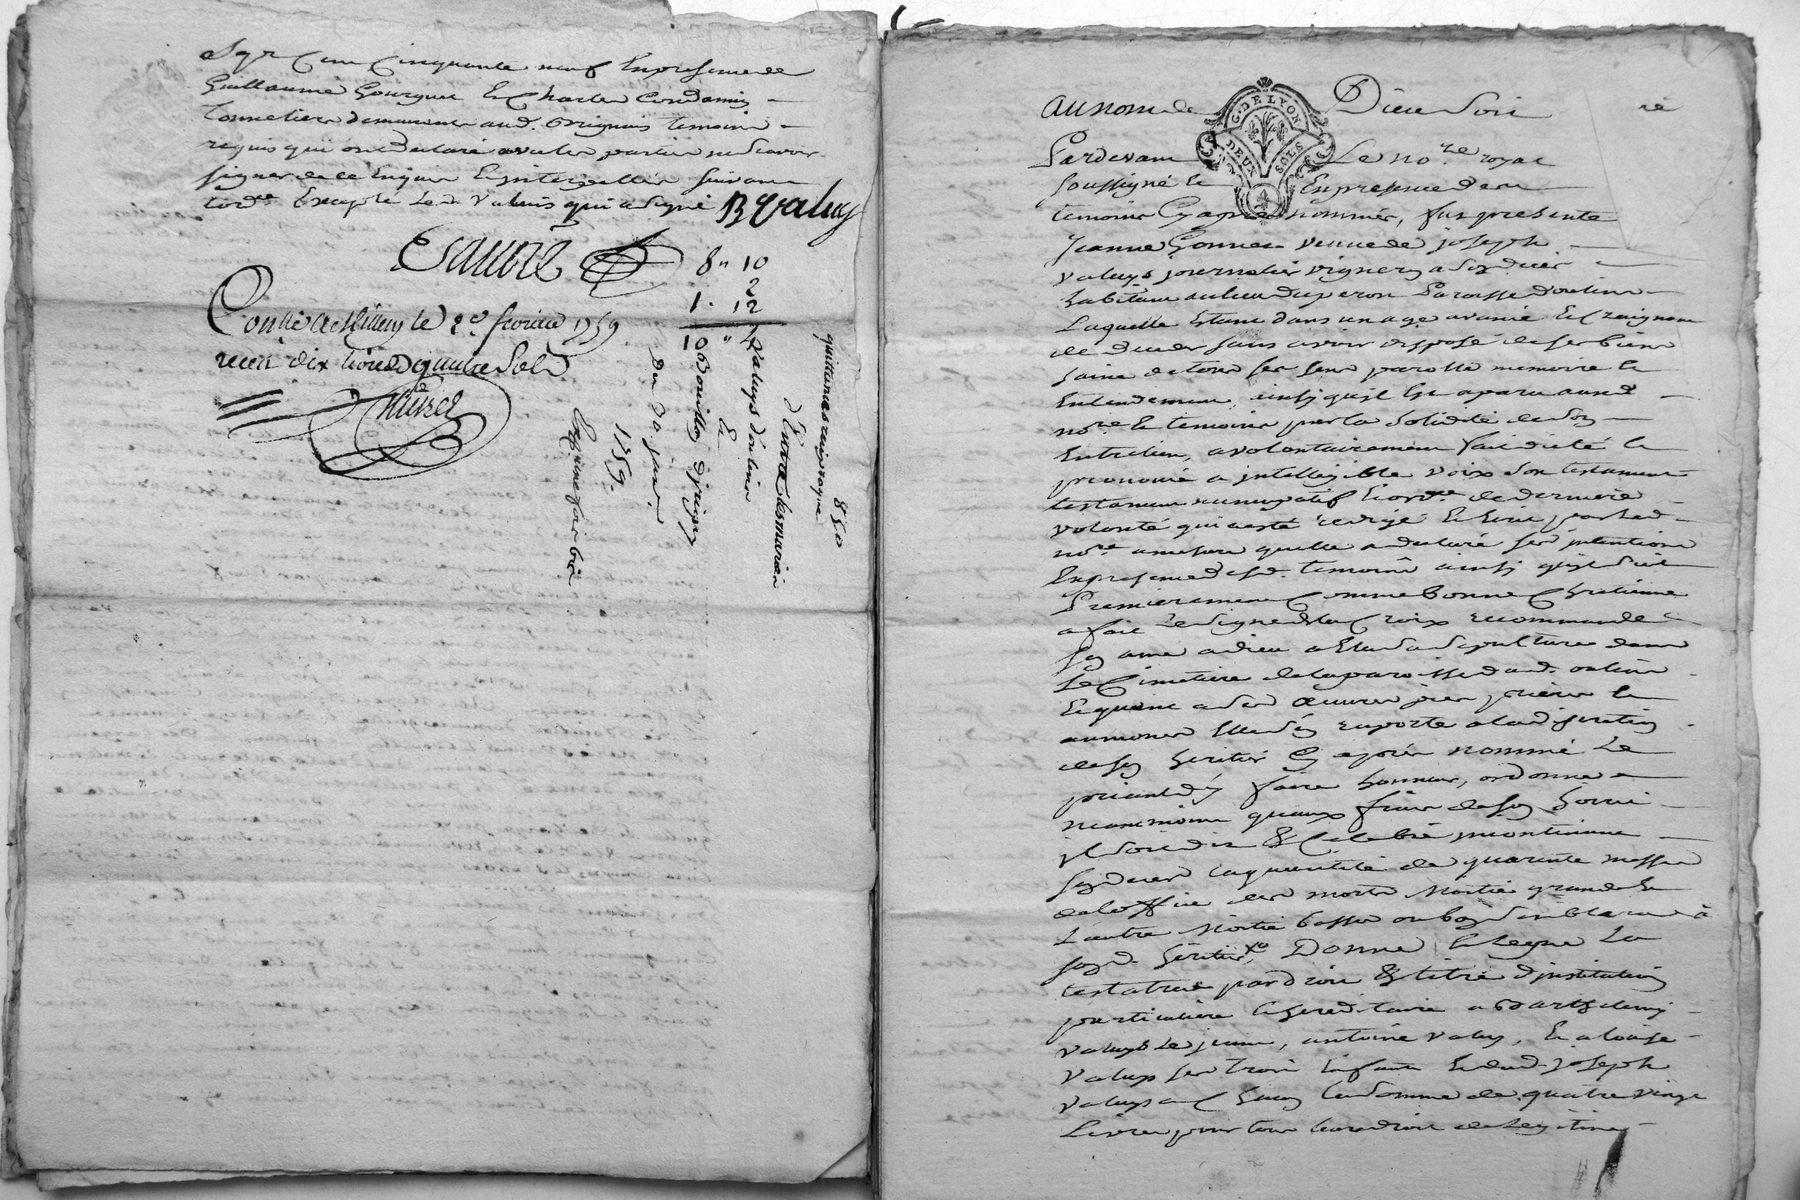 Sept Cent Cinquante neuf En presence de
Guillaume Gourguet Et Charles Condamin
Tonneliers demeurant aud. Orignins temoins
requis qui ont declaré avec les parties ne Scavoir
signer de ce Enquis Et Interpellés suivant
lord.ce Excepté Led. Valuis qui a Signé B Valuy
8" 10
2
1. 12
10 " 4
Con.llé A Millery le 2e fevrier 1759
recu dix livres quatre Sols
quittance reciproque 850
d'Entre les mariés
Valuys d'oulins
Et
du 30 janv.
1759.
AU nom de Dieu Soit
G. DE LYON
DEUX SOLS
Pardevant Le no.re royal
soussigné Et En presence des
temoins Cy apres nommés, fut presente
Jeanne Gonnet veuve de joseph
Valuys journalier vigneron a Son deces
habitante au lieu du peron Paroisse d'oulins
Laquelle Etant dans un age avancé Et Craignant
de deceder sans avoir disposé de ses biens
saine de tous ses sens parolle memoire Et
Entendement, ainsy quil Est aparu aud.
no.re Et temoins par la solidité de son
Entretien, a volontairement fait dicté Et
prononcé a jntelligible voix Son testament
testament nuncupatif Et ord.ce de derniere
volonté qui a eté redigé Et Ecrit par led.
no.re a mesure quelle a declaré ses jntentions
En presence desd. temoins ainsy quil Suit
Premierement Comme bonne Chretienne
a fait le Signe de la Croix recommandé
son ame a dieu a Elu Sa Sepulture dans
Le Cimetiere de la paroisse dud. oulins
Et quant a Ses Œuvres pies prieres Et
aumones Elle Sen raporte a la discretion
de son heritier Cy apres nommé Le
priant d'y faire honneur, ordonne
neanmoins quaux frais de son hoirie
jl Soit dit & Celebré jncontinent
son deces la quantité de quarante messes
de loffice des morts Moitié grandes Et
L'autre Moitié basses
sond. heritier, Donne Et Legue La
testatrice par droit & titre d'jnstitution
particuliere Et hereditaire a Barthelemy
Valuys Le jeune, antoine Valuy, Et
Valuys ses trois Enfans Et dud. joseph
Valuys a Chacun La Somme de quatre vingt
Livres pour tous Leurs droits de Legitime